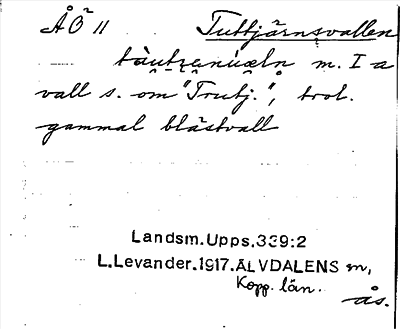 ÅÖ² 11 Tuttjärnsvallen
m. I a
vall s. om "Trutj.", trol.
gammal blåstvall
Landsm.Upps.339:2
L.Levander.1917.ÄLVDALENS sn,
Kopp. län.
ås.